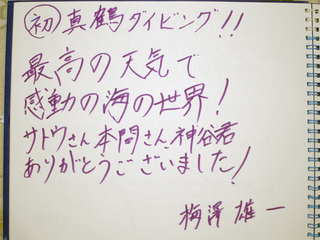 初 真鶴ダイビング!!
最高の天気で
感動の海の世界!
サトウさん本間さん、神谷君
ありがとうございました!
梅澤雄一